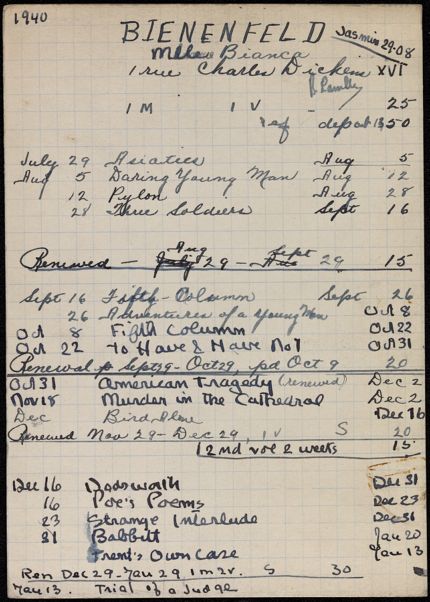 1940
BIENENFELD Jasmin 29-08
Mlle Bianca
1 rue Charles Dickens XVI
1 M 1 V - 25
ref deposit 50
July 29 Asiatics Aug 5
Aug 5 Daring Young Man Aug 12
12 Pylon Aug 28
28 Three Soldiers Sept 16
Renewed - July Aug 29 - Aug Sept 29 15
Sept 16 Fifth-Column Sept 26
26 Adventures of a Young Man Oct 8
Oct 8 Fifth Column Oct 22
Oct 22 To Have & Have Not Oct 31
Renewal p Sept 29 - Oct 29, pd Oct 9 20
Oct 31 American Tragedy (renewed) Dec 2
Nov 18 Murder in the Cathedral Dec 2
Dec Bird Alone Dec 16
Renewed Nov 29 - Dec 29, 1 V S 20
1 2nd vol 2 weeks 15
Dec 16 Dodsworth Dec 31
16 Poe's Poems Dec 23
23 Strange Interlude Dec 31
31 Babbitt Jan 20
Trent's Own Case Jan 13
Ren Dec 29 - Jan 29 1 m 2 v. S 30
Jan 13. Trial of a Judge